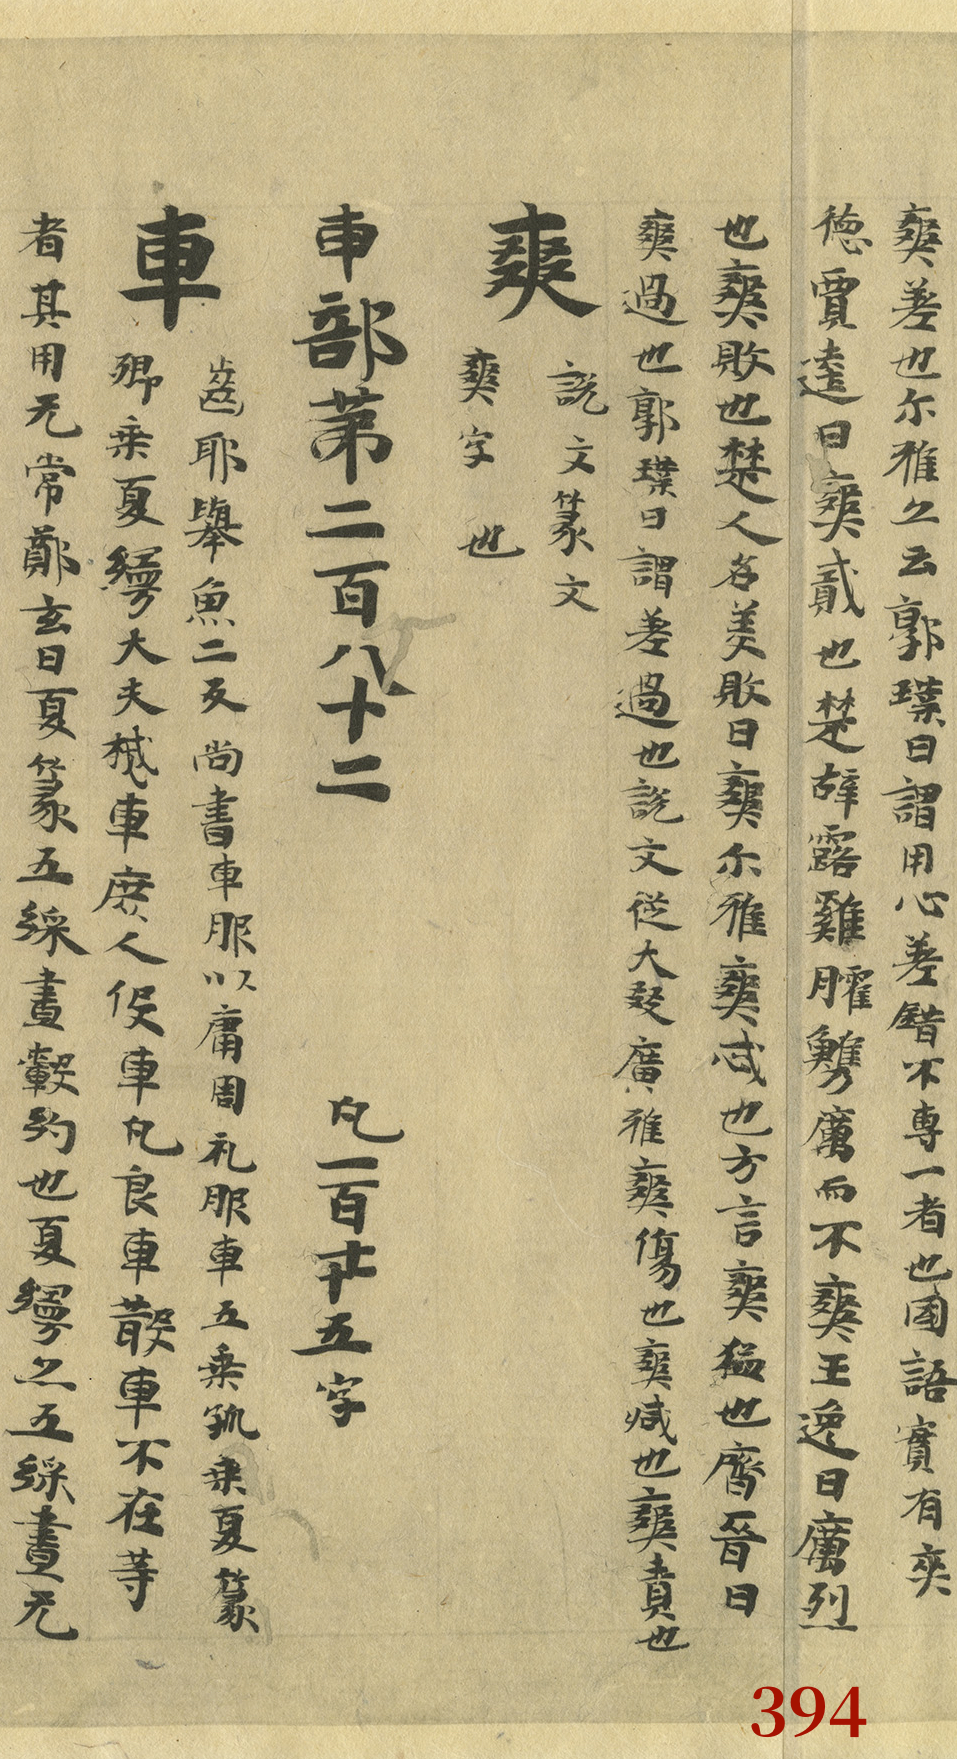 爽差也尒雅久云郭璞曰謂用心差錯不專一者也國語實有爽
德賈逵曰爽貳也楚辝露雞臛蠵厲而不爽王逸曰厲烈
也爽敗也楚人名羙敗曰爽尒雅爽忒也方言爽猛也齊晉曰
爽過也郭璞曰謂差過也說文從大㸚廣雅爽傷也爽減也爽責也
爽
說文篆文
爽字也
車部第二百八十二 凡一百卌五字
車
齒耶轝魚二反尚書車服以庸周礼服車五乗孤乗夏篆
卿乗夏縵大夫墨車庶人伇車凢良車散車不在等
者其用无常鄭玄曰夏篆五綵畫轂約也夏縵亦五綵畫无
394